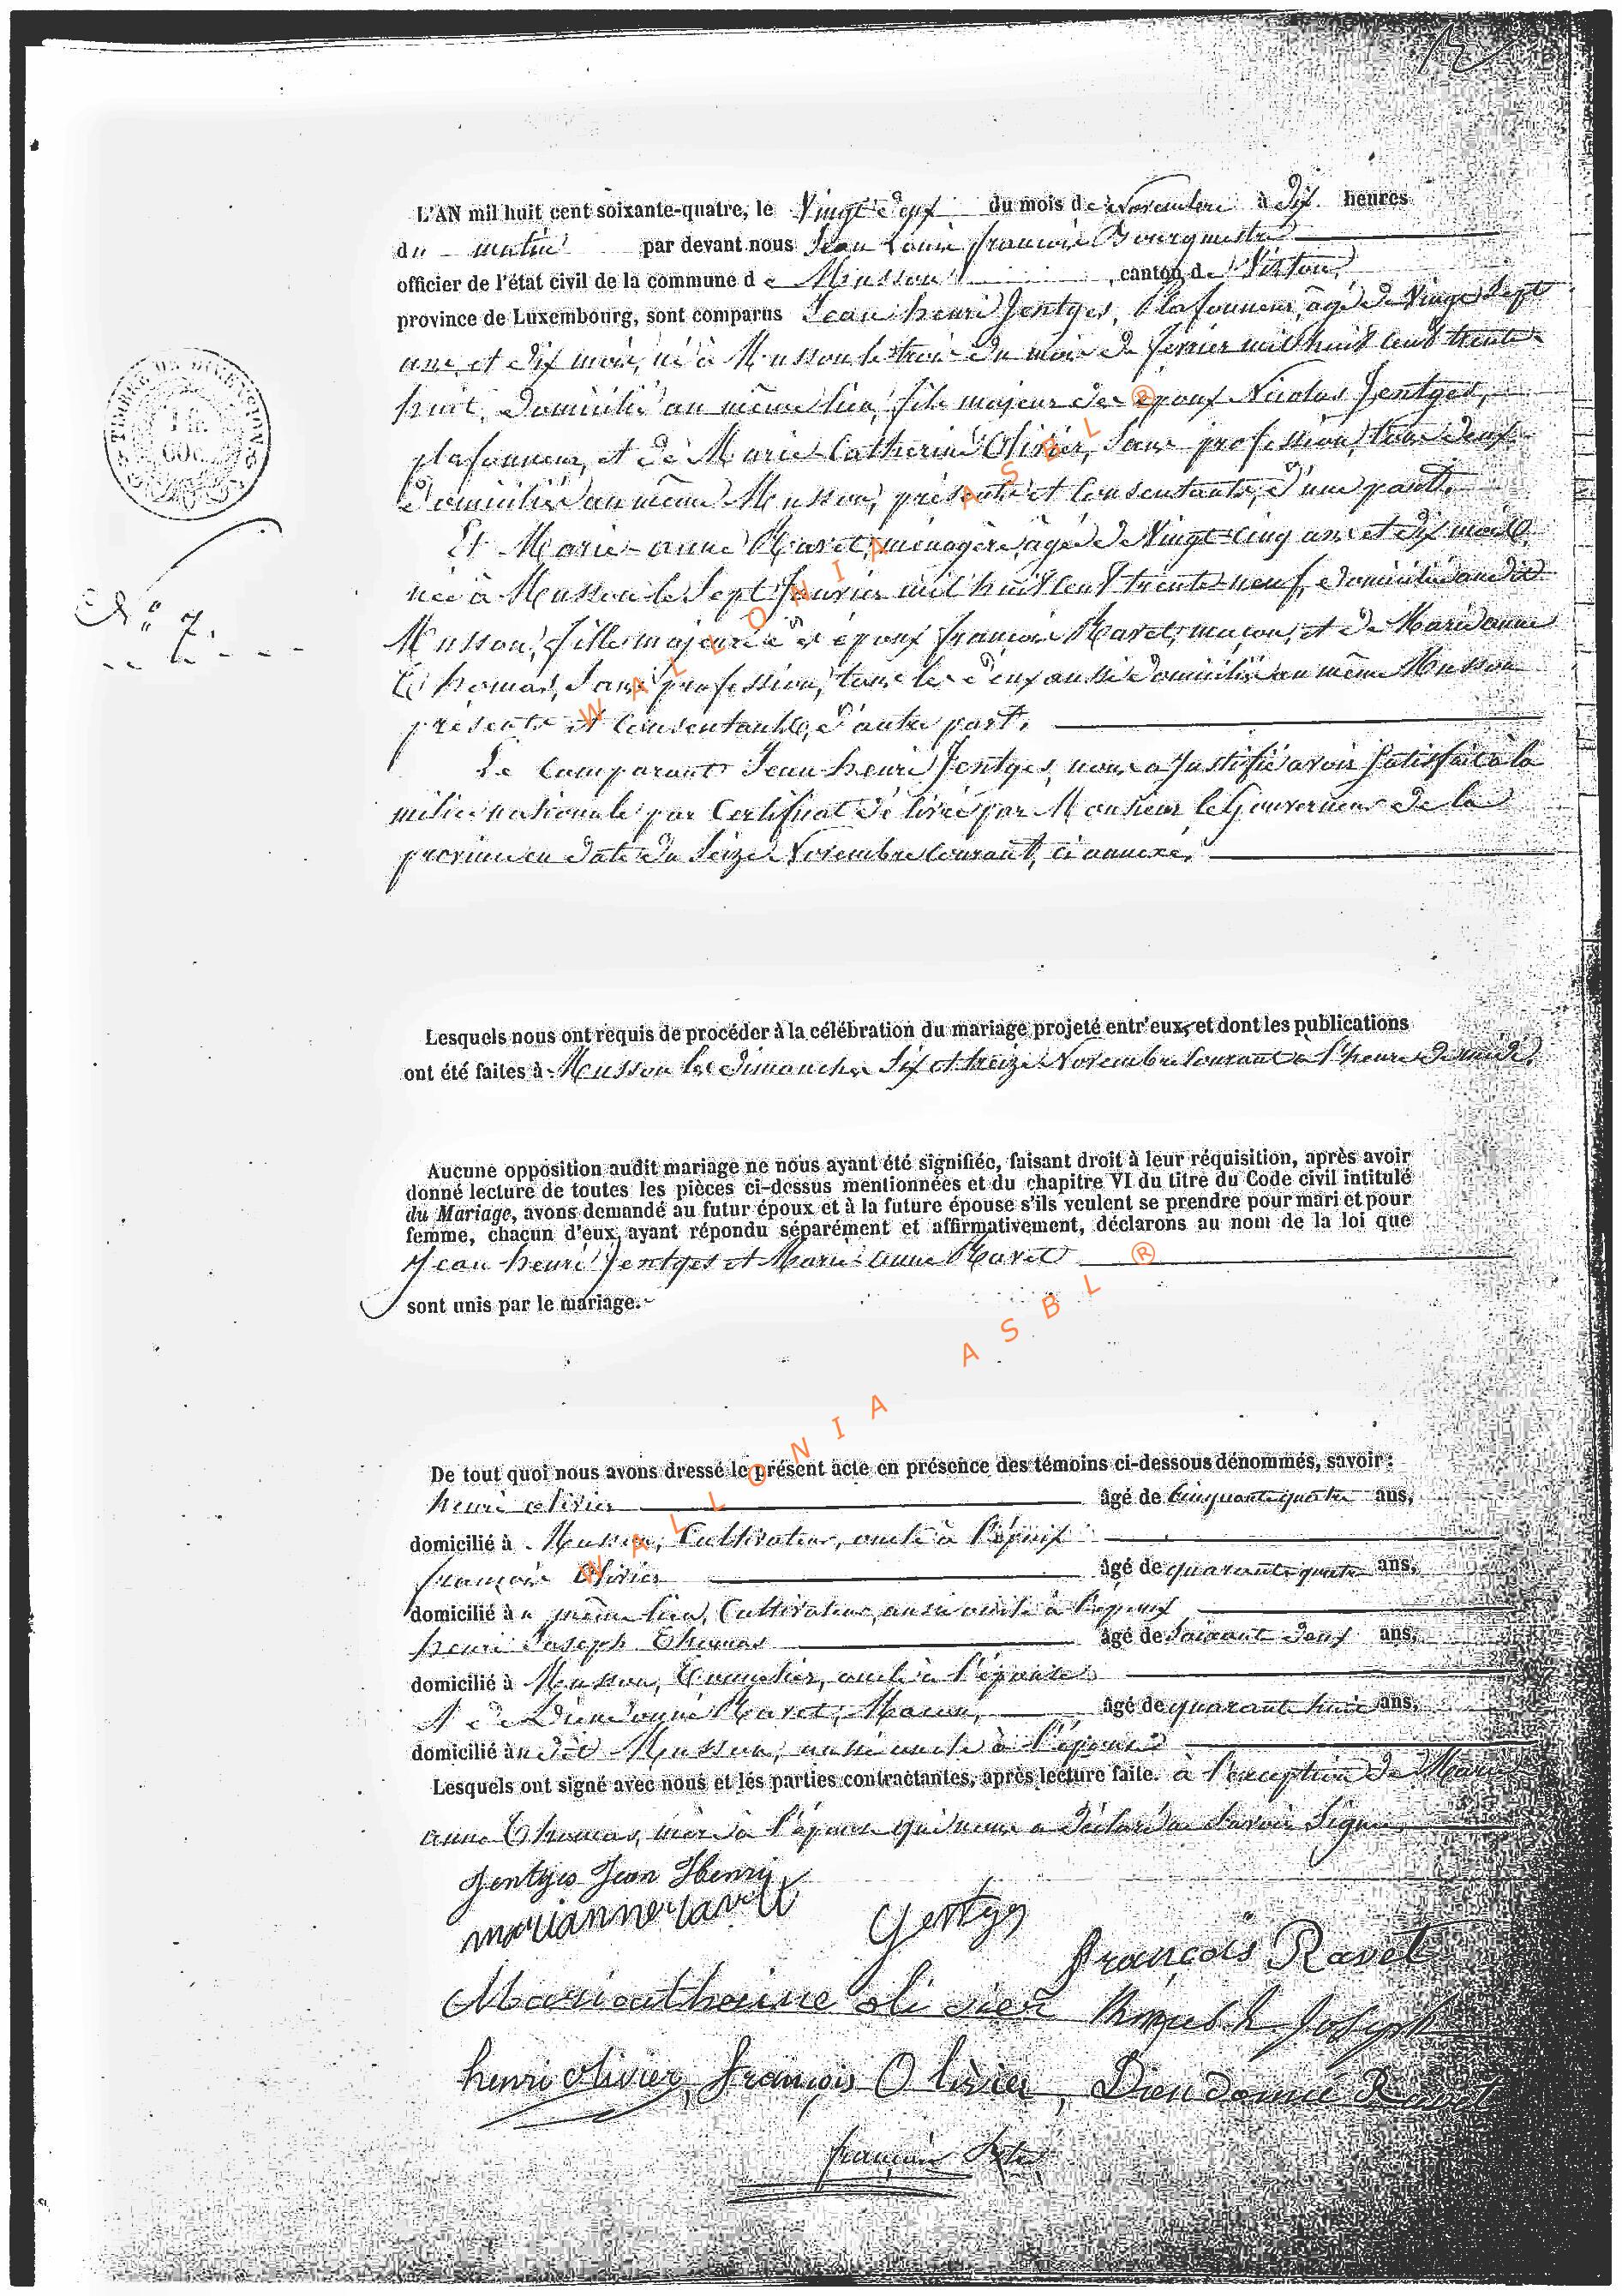 L'AN mil huit cent soixante-quatre, le Vingt deux du mois de Novembre à dix heures
du matin par devant nous Jean Louis françois Bourgmestre
officier de l'état civil de la commune de Musson canton de Virton,
province de Luxembourg, sont comparus Jean henri Jentges, Plafonneur, âgé de Vingt Sept
ans et dix mois, né à Musson le trois du mois de fevrier mil huit cent trente
huit, domicilié au même lieu, fils majeur des époux Nicolas Jentges,
plafonneur, et de Marie Catherine Olivier, Sans profession, tous deux
domiciliés au même Musson, présents et Consentants, d'une part.
Et Marie-anne Ravet, ménagère, âgée de Vingt-cinq ans et dix mois,
née à Musson le Sept Janvier mil huit cent trente-neuf, domiciliée au dit
Musson, fille majeure des époux françois Ravet, maçon, et de Marie anne
Thomas, Sans profession, tous les deux aussi domiciliés au même Musson
présents et Consentants, d'autre part.
Le Comparant Jean henri Jentges, nous a Justifié avoir Satisfait à la
milice nationale par Certificat délivré par Monsieur le Gouverneur de la
province en date du Seize Novembre Courant, ci annexé.
TIMBRE DE DIMENSION
1 fr.
60c.
N° 7.
Lesquels nous ont requis de procéder à la célébration du mariage projeté entr'eux, et dont les publications
ont été faites à Musson les dimanches Six et treize Novembre Courant à l'heure de midi.
Aucune opposition audit mariage ne nous ayant été signifiée, faisant droit à leur réquisition, après avoir
donné lecture de toutes les pièces ci-dessus mentionnées et du chapitre VI du titre du Code civil intitulé
du Mariage, avons demandé au futur époux et à la future épouse s'ils veulent se prendre pour mari et pour
femme, chacun d'eux ayant répondu séparément et affirmativement, déclarons au nom de la loi que
Jean henri Jentges et Marie-anne Ravet
sont unis par le mariage.
De tout quoi nous avons dressé le présent acte en présence des témoins ci-dessous dénommés, savoir :
henri olivier âgé de Cinquante quatre ans,
domicilié à Musson, Cultivateur, oncle à l'époux
françois Olivier âgé de quarante quatre ans,
domicilié au même lieu, Cultivateur, aussi oncle à l'époux
henri Joseph Thomas âgé de Soixante deux ans,
domicilié à Musson, Tonnelier, oncle à l'épouse
et de Dieudonné Ravet, Maçon, âgé de quarante huit ans,
domicilié au dit Musson, aussi oncle à l'épouse
Lesquels ont signé avec nous et les parties contractantes, après lecture faite. à l'exception de Marie
anne Thomas, mère à l'épouse qui nous a déclaré ne Savoir Signer,
Jentges Jean Henry
marianne ravet
Jentges
françois Ravet
Mariecatherine olivier
Joseph
henri olivier, françois Olivier, Dieudonné Ravet
françois
WALLONIA ASBL ®
WALLONIA ASBL ®